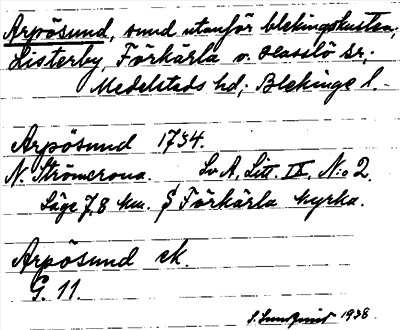 Arpösund, sund utanför blekingskusten,
Listerby, Förkärla o. Hasslö sr;
Medelstads hd; Blekinge l.
Arpösund 1734.
N. Strömcrona. Sv A, Litt. IX, N:o 2.
Läge 7,8 km. S Förkärla kyrka.
Arpösund ek.
G. 11.
S. Lundquist 1938.